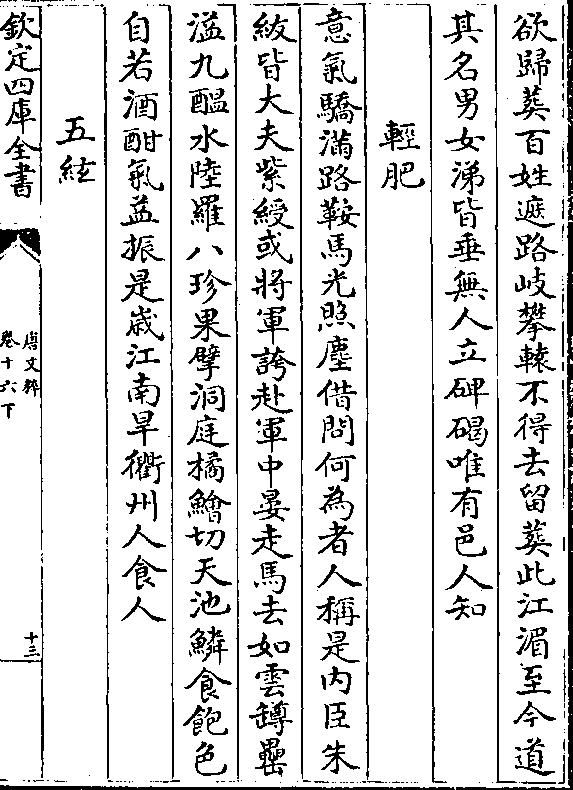 欲歸葬百姓遮路岐攀轅不得去留葬此江湄至今道
其名男女涕皆垂無人立碑碣唯有邑人知
輕肥
意氣驕滿路鞍馬光照塵借問何為者人稱是内臣朱
紱皆大夫紫綬或將軍誇赴軍中宴走馬去如雲罇罍
溢九醖水陸羅八珍果擘洞庭橘鱠切天池鱗食飽色
自若酒酣氣益振是歳江南旱衢州人食人
五絃
欽定四庫全書
唐文粹
卷十六下
十三